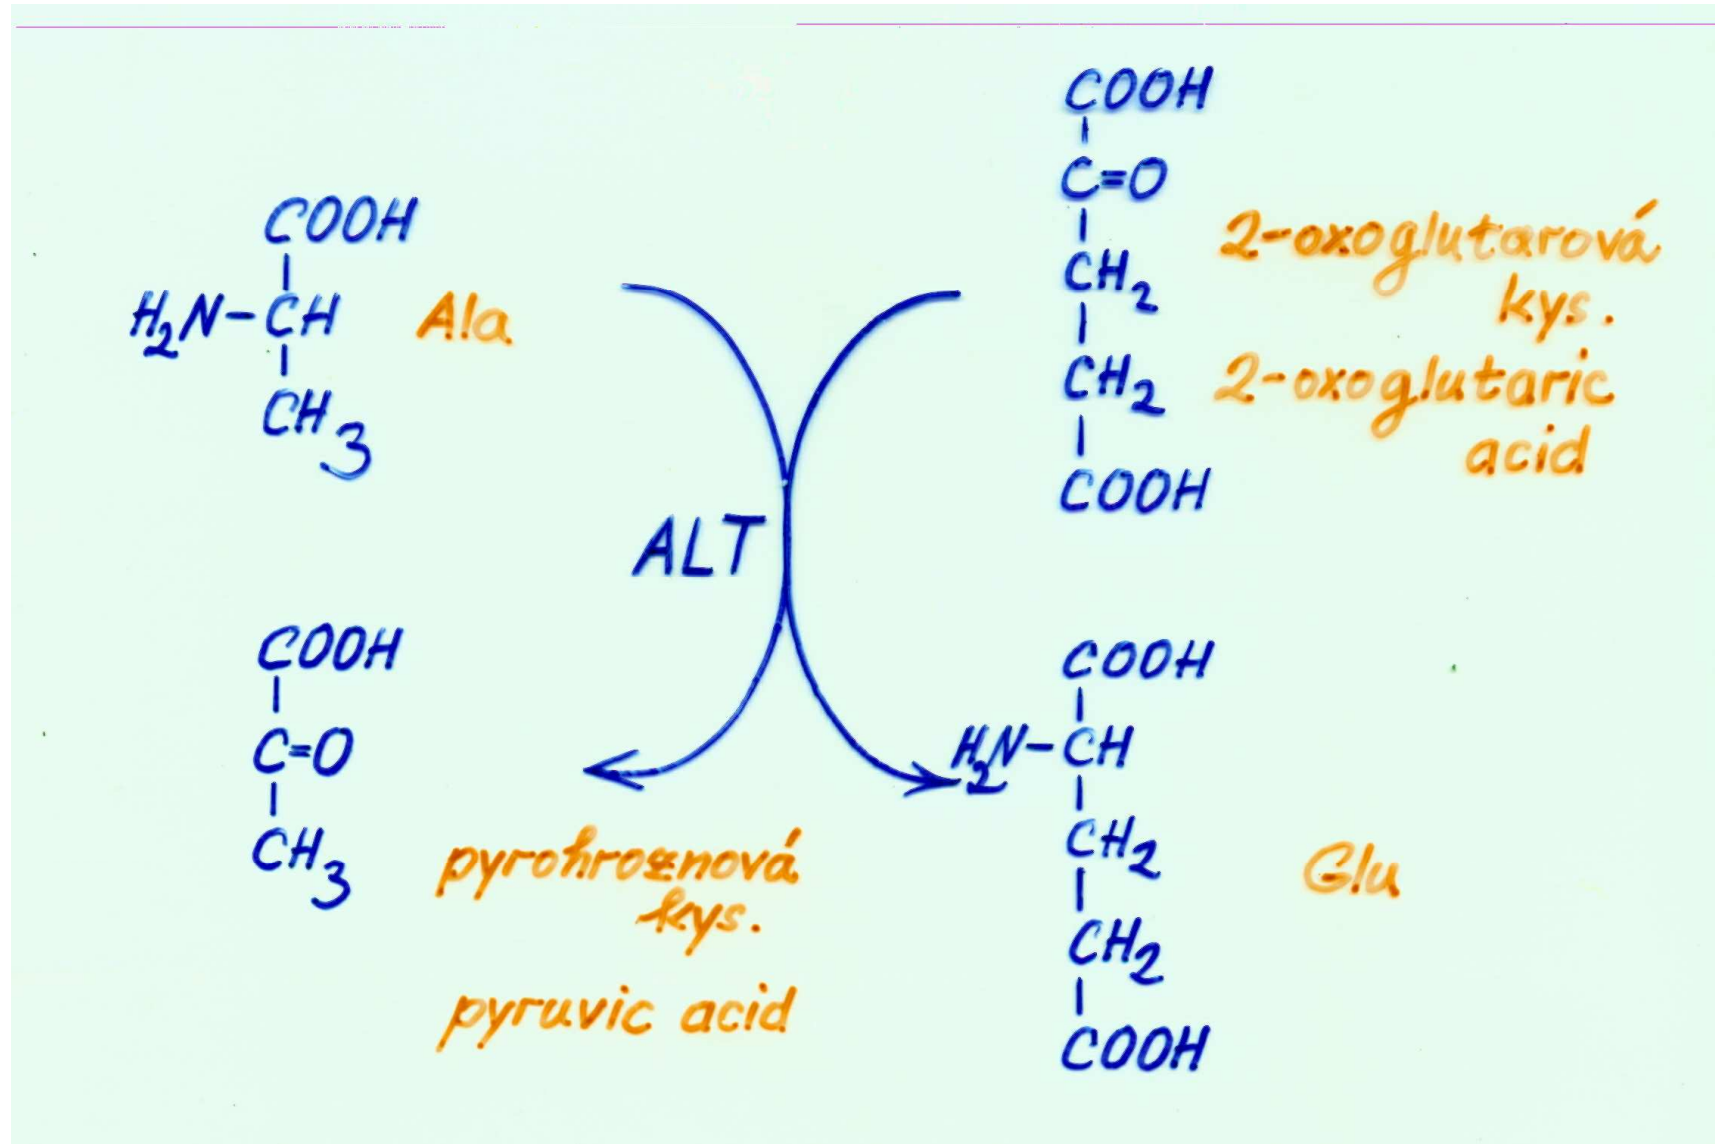 COOH
H₂N-CH Ala
CH₃
COOH
C=O
CH₂
CH₂
COOH
2-oxoglutarová
kys.
2-oxoglutaric
acid
ALT
COOH
C=O
CH₃
pyrohroznová
kys.
pyruvic acid
COOH
H₂N-CH
CH₂
CH₂
COOH
Glu